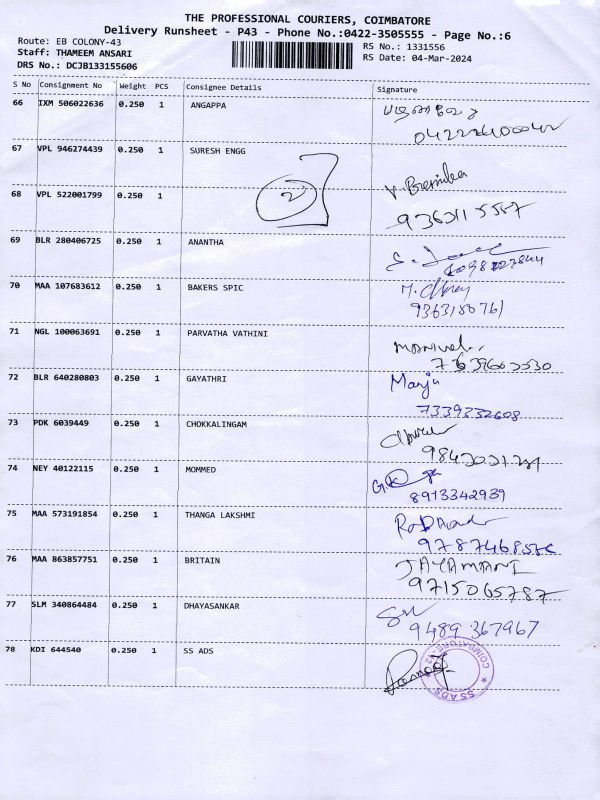 THE PROFESSIONAL COURIERS, COIMBATORE
Delivery Runsheet - P43 - Phone No.:0422-3505555 - Page No.:6
Route: EB COLONY-43
Staff: THAMEEM ANSARI
DRS No.: DCJB133155606
RS No.: 1331556
RS Date: 04-Mar-2024
S No Consignment No Weight PCS Consignee Details Signature
66 IXM 506022636 0.250 1 ANGAPPA
67 VPL 946274439 0.250 1 SURESH ENGG
2
68 VPL 522001799 0.250 1
69 BLR 280406725 0.250 1 ANANTHA
70 MAA 107683612 0.250 1 BAKERS SPIC
9363150761
71 NGL 100063691 0.250 1 PARVATHA VATHINI
72 BLR 640280803 0.250 1 GAYATHRI Manju
7339332608
73 PDK 6039449 0.250 1 CHOKKALINGAM
74 NEY 40122115 0.250 1 MOMMED
8913342939
75 MAA 573191854 0.250 1 THANGA LAKSHMI
76 MAA 863857751 0.250 1 BRITAIN JAYAMANI
9715065787
77 SLM 340864484 0.250 1 DHAYASANKAR
9489 367967
78 KDI 644540 0.250 1 SS ADS
SS ADS